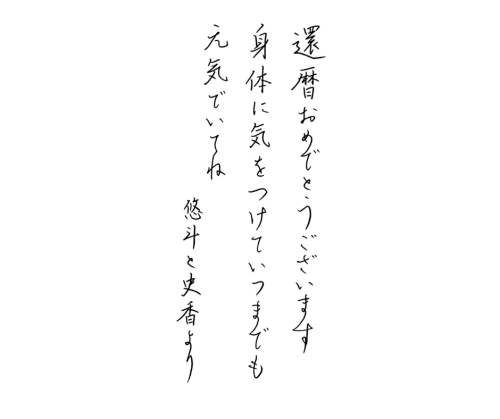 還暦おめでとうございます
身体に気をつけていつまでも
元気でいてね
悠斗と史香より